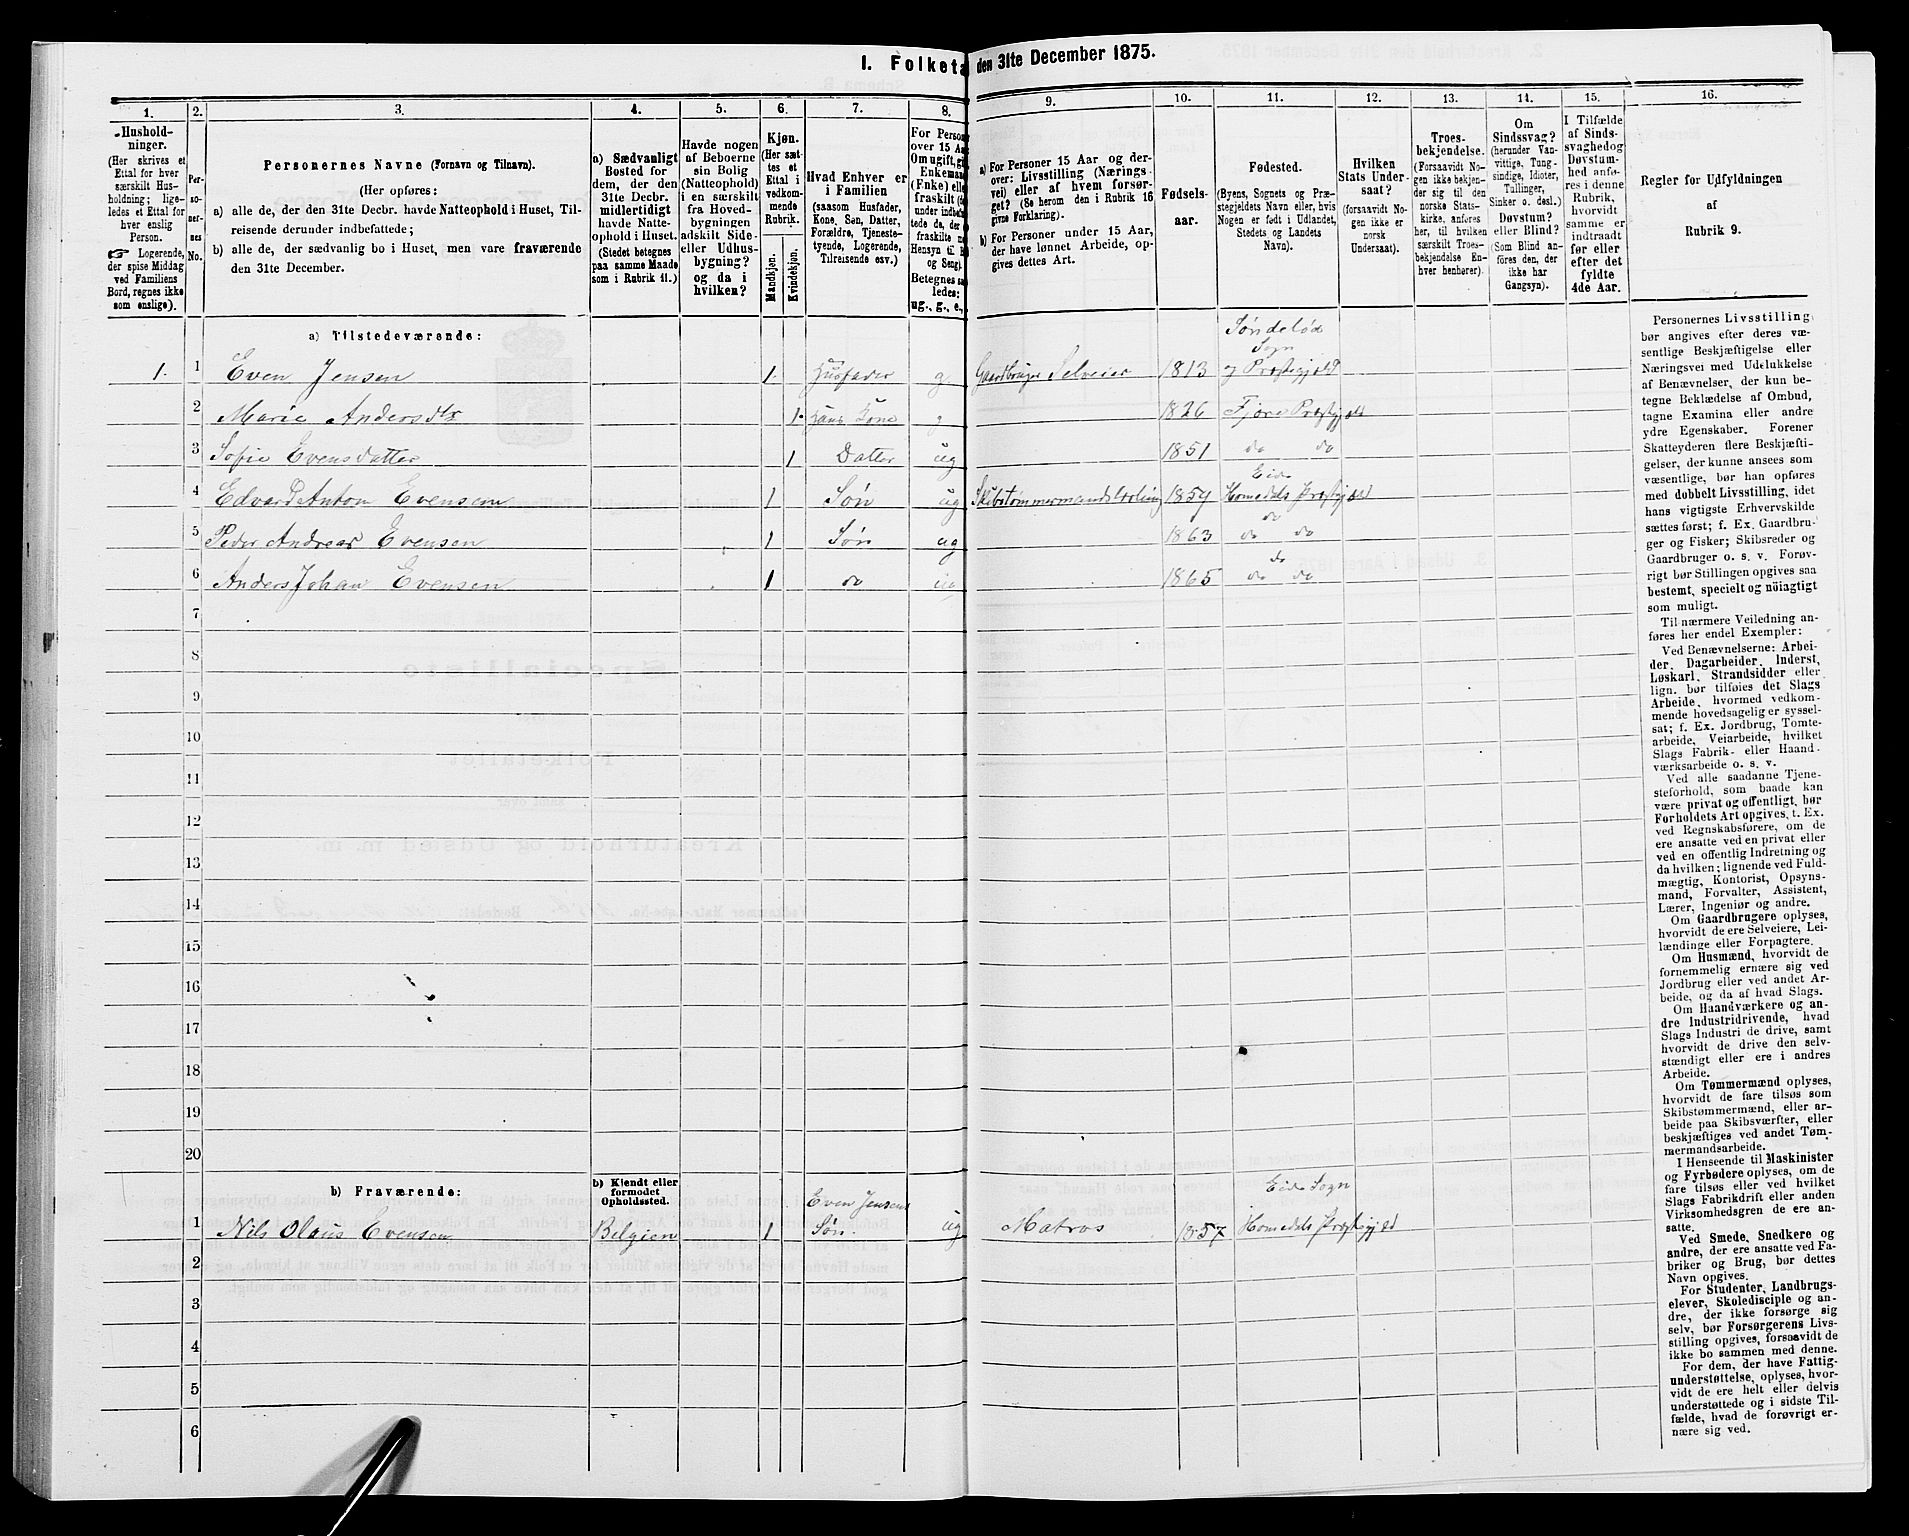 I. Folketa den 31te December 1875.
1. 2. 3. 4. 5. 6. 7. 8. 9. 10. 11. 12. 13. 14. 15. 16.
Hushold-
ninger.
(Her skrives et
Ettal for hver
særskilt Hus-
holdning; lige-
ledes et Ettal for
hver enslig
Person.
☞ Logerende,
der spise Middag
ved Familiens
Bord, regnes ikke
som enslige).
Per-
so-
ner-
nes
No.
Personernes Navne (Fornavn og Tilnavn).
(Her opføres:
a) alle de, der den 31te Decbr. havde Natteophold i Huset, Til-
reisende derunder indbefattede;
b) alle de, der sædvanlig bo i Huset, men vare fraværende
den 31te December.
a) Sædvanligt
Bosted for
dem, der den
31te Decbr.
midlertidigt
havde Natte-
ophold i Huset.
(Stedet betegnes
paa samme Maade
som i Rubrik 11.)
Havde nogen
af Beboerne
sin Bolig
(Natteophold)
i en særskilt
fra Hoved-
bygningen
adskilt Side-
eller Udhus-
bygning?
og da i
hvilken?
Kjøn.
(Her sæt-
tes et
Ettal i
vedkom-
mende
Rubrik.
Mandkjøn.
Kvindekjøn.
Hvad Enhver er
i Familien
(saasom Husfader,
Kone, Søn, Datter,
Forældre, Tjeneste-
tyende, Logerende,
Tilreisende osv.)
For Person
over 15 Aa
Om ugift, gi
Enkemand
(Enke) elle
fraskilt (
under indbef
tede de, der
fraskilte m
Hensyn til B
og Seng).
Betegnes sa
ledes:
ug., g., e.,
a) For Personer 15 Aar og der-
over: Livsstilling (Nærings-
vei) eller af hvem forsør-
get? (Se herom den i Rubrik 16
givne Forklaring).
b) For Personer under 15 Aar,
der have lønnet Arbeide, op-
gives dettes Art.
Fødsels-
aar.
Fødested.
(Byens, Sognets og Præ-
stegjeldets Navn eller, hvis
Nogen er født i Udlandet,
Stedets og Landets
Navn).
Hvilken
Stats Under-
saat?
(forsaavidt No-
gen ikke er
norsk
Undersaat).
Troes-
bekjendelse.
(Forsaavidt No-
gen ikke bekjen-
der sig til den
norske Stats-
kirke, anføres
her, til hvilken
særskilt Troes-
bekjendelse En-
hver henhører).
Om
Sindssvag?
(herunder Van-
vittige, Tung-
sindige, Idioter,
Tullinger,
Sinker o. desl.)
Døvstum?
eller Blind?
(Som Blind an-
føres den, der
ikke har
Gangsyn).
I Tilfælde
af Sinds-
svaghed og
Døvstum-
hed anfø-
res i denne
Rubrik,
hvorvidt
samme er
indtraadt
før eller
efter det
fyldte
4de Aar.
Regler for Udfyldningen
af
Rubrik 9.
a) Tilstedeværende:
Søndeløds
Sogn
1. 1 Even Jensen 1. Husfader g. Gaardbruger Selveier 1813 og Præstegjeld
2 Marie Andersdtr 1. Hans Kone g 1826 Præstegjeld
3 Sofie Evensdatter 1 Datter ug 1851 do do
Eide
4 Edvard Anton Evensen 1 Søn ug Skibstømmermandslærling 1859 Homedals Præstegjeld
do
5 Peder Andreas Evensen 1 Søn ug 1863 do do
do
6 Anders Johan Evensen 1 do ug 1865 do do
7
8
9
10
11
12
13
14
15
16
17
18
19
20
b) Fraværende:
b) Kjendt eller
formodet
Opholdssted.
Even Jensens
Eide Sogn
1 Nils Olaus Evensen Belgien 1 Søn. ug Matros 1857 Homedals Præstegjeld
2
3
4
5
6
Personernes Livsstilling
bør angives efter deres væ-
sentlige Beskjæftigelse eller
Næringsvei med Udelukkelse
af Benævnelser, der kun be-
tegne Beklædelse af Ombud,
tagne Examina eller andre
ydre Egenskaber. Forener
Skatteyderen flere Beskjæfti-
gelser, der kunne ansees som
væsentlige, bør han opføres
med dobbelt Livsstilling, idet
hans vigtigste Erhvervskilde
sættes først; f. Ex. Gaardbru-
ger og Fisker; Skibsreder og
Gaardbruger o. s. v. Forøv-
rigt bør Stillingen opgives saa
bestemt, specielt og nöiagtigt
som muligt.
Til nærmere Veiledning an-
føres her endel Exempler:
Ved Benævnelserne: Arbei-
der, Dagarbeider, Inderst,
Løskarl, Strandsidder eller
lign. bør tilføies det Slags
Arbeide, hvormed vedkom-
mende hovedsagelig er syssel-
sat; f. Ex. Jordbrug, Tomte-
arbeide, Veiarbeide, hvilket
Slags Fabrik- eller Haand-
værksarbeide o. s. v.
Ved alle saadanne Tjene-
steforhold, som baade kan
være privat og offentligt, bør
Forholdets Art opgives, t. Ex.
ved Regnskabsførere, om de
ere ansatte ved en privat eller
ved en offentlig Indretning og
da hvilken; lignende ved Fuld-
mægtig, Kontorist, Opsyns-
mand, Forvalter, Assistent,
Lærer, Ingeniør og andre.
Om Gaardbrugere oplyses,
hvorvidt de ere Selveiere, Lei-
lændinge eller Forpagtere.
Om Husmænd, hvorvidt de
fornemmelig ernære sig ved
Jordbrug eller ved andet Ar-
beide, og da af hvad Slags.
Om Haandværkere og an-
dre Industridrivende, hvad
Slags Industri de drive, samt
hvorvidt de drive den selv-
stændigt eller ere i andres
Arbeide.
Om Tømmermænd oplyses,
hvorvidt de fare tilsøs som
Skibstømmermænd, eller ar-
beide paa Skibsværfter, eller
beskjæftiges ved andet Tøm-
mermandsarbeide.
I Henseende til Maskinister
og Fyrbødere oplyses, om de
fare tilsøs eller ved hvilket
Slags Fabrikdrift eller anden
Virksomhedsgren de ere an-
satte.
Ved Smede, Snedkere og
andre, der ere ansatte ved Fa-
briker og Brug, bør dettes
Navn opgives.
For Studenter, Landbrugs-
elever, Skoledisciple og an-
dre, der ikke forsørge sig
selv, bør Forsørgerens Livs-
stilling opgives, forsaavidt de
ikke bo sammen med denne.
For dem, der have Fattig-
understøttelse, oplyses, hvor-
vidt de ere helt eller delvis
understøttede og i sidste Til-
fælde, hvad de forøvrigt er-
nære sig ved.